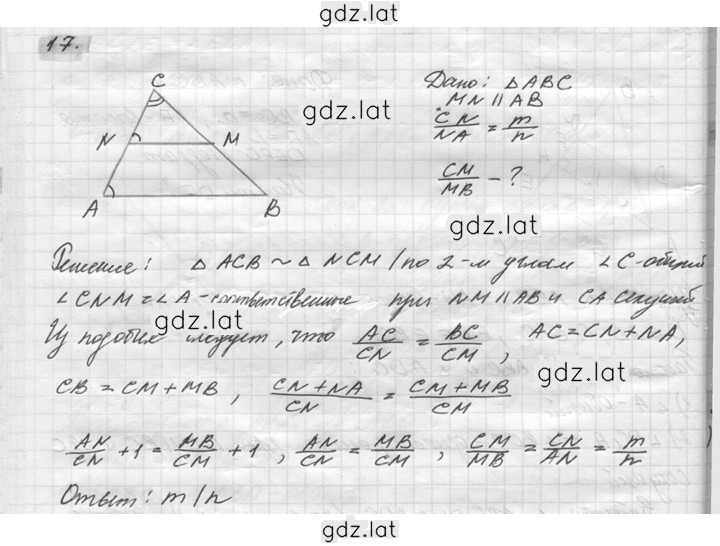 gdz.lat
17.
C
N M
A B
Дано: △ABC
MN ∥ AB
CN/NA = m/n
CM/MB - ?
gdz.lat
gdz.lat
Решение: △ ACB ~ △ NCM /по 2-м углам ∠C-общий
∠CNM = ∠A - соответственные при NM ∥ AB и CA секущей
Из подобия следует, что AC/CN = BC/CM, AC = CN + NA,
gdz.lat
gdz.lat
CB = CM + MB, (CN + NA)/CN = (CM + MB)/CM
AN/CN + 1 = MB/CM + 1, AN/CN = MB/CM, CM/MB = CN/AN = m/n
Ответ: m/n
gdz.lat